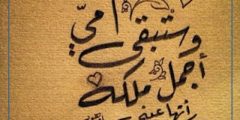 وستبقى أمّي
أجمل ملكة